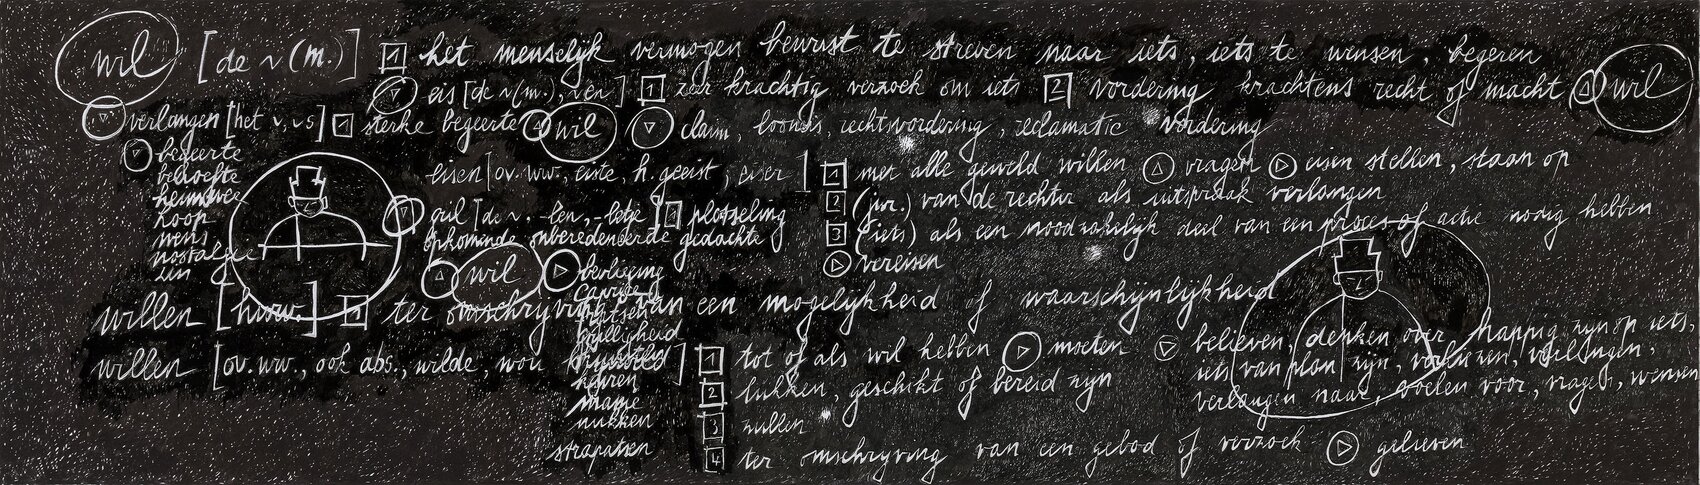 wil [de ~ (m.)] 1 het menselijk vermogen bewust te streven naar iets, iets te wensen, begeren
▽ eis [de ~ (m.), ~en] 1 zeer krachtig verzoek om iets 2 vordering krachtens recht of macht △ wil
▽ verlangen [het ~, ~s] 1 sterke begeerte △ wil ▽ claim, looneis, rechtsvordering, reclamatie vordering
▷ begeerte
behoefte
heimwee
hoop
wens
nostalgie
eisen [ov. ww., eiste, h. geëist, eiser] 1 met alle geweld willen △ vragen ▷ eisen stellen, staan op
2 (jur.) van de rechter als uitspraak verlangen
3 (iets) als een noodzakelijk deel van een proces of actie nodig hebben
▷ vereisen
▽ gril [de ~, -len, -letje] 1 plotseling
opkomende onberedeneerde gedachte
△ wil ▷ bevlieging
caprice
grilligheid
kuren
manie
nukken
strapatsen
willen [hww.] 1 ter omschrijving van een mogelijkheid of waarschijnlijkheid
willen [ov. ww., ook abs., wilde, wou 1 tot of als wil hebben ▷ moeten ▽ believen, denken over, happig zijn op iets,
iets van plan zijn, verkiezen, verlangen,
verlangen naar, voelen voor, vragen, wensen
2 lukken, geschikt of bereid zijn
3 zullen
4 ter omschrijving van een gebod of verzoek ▷ gelieven